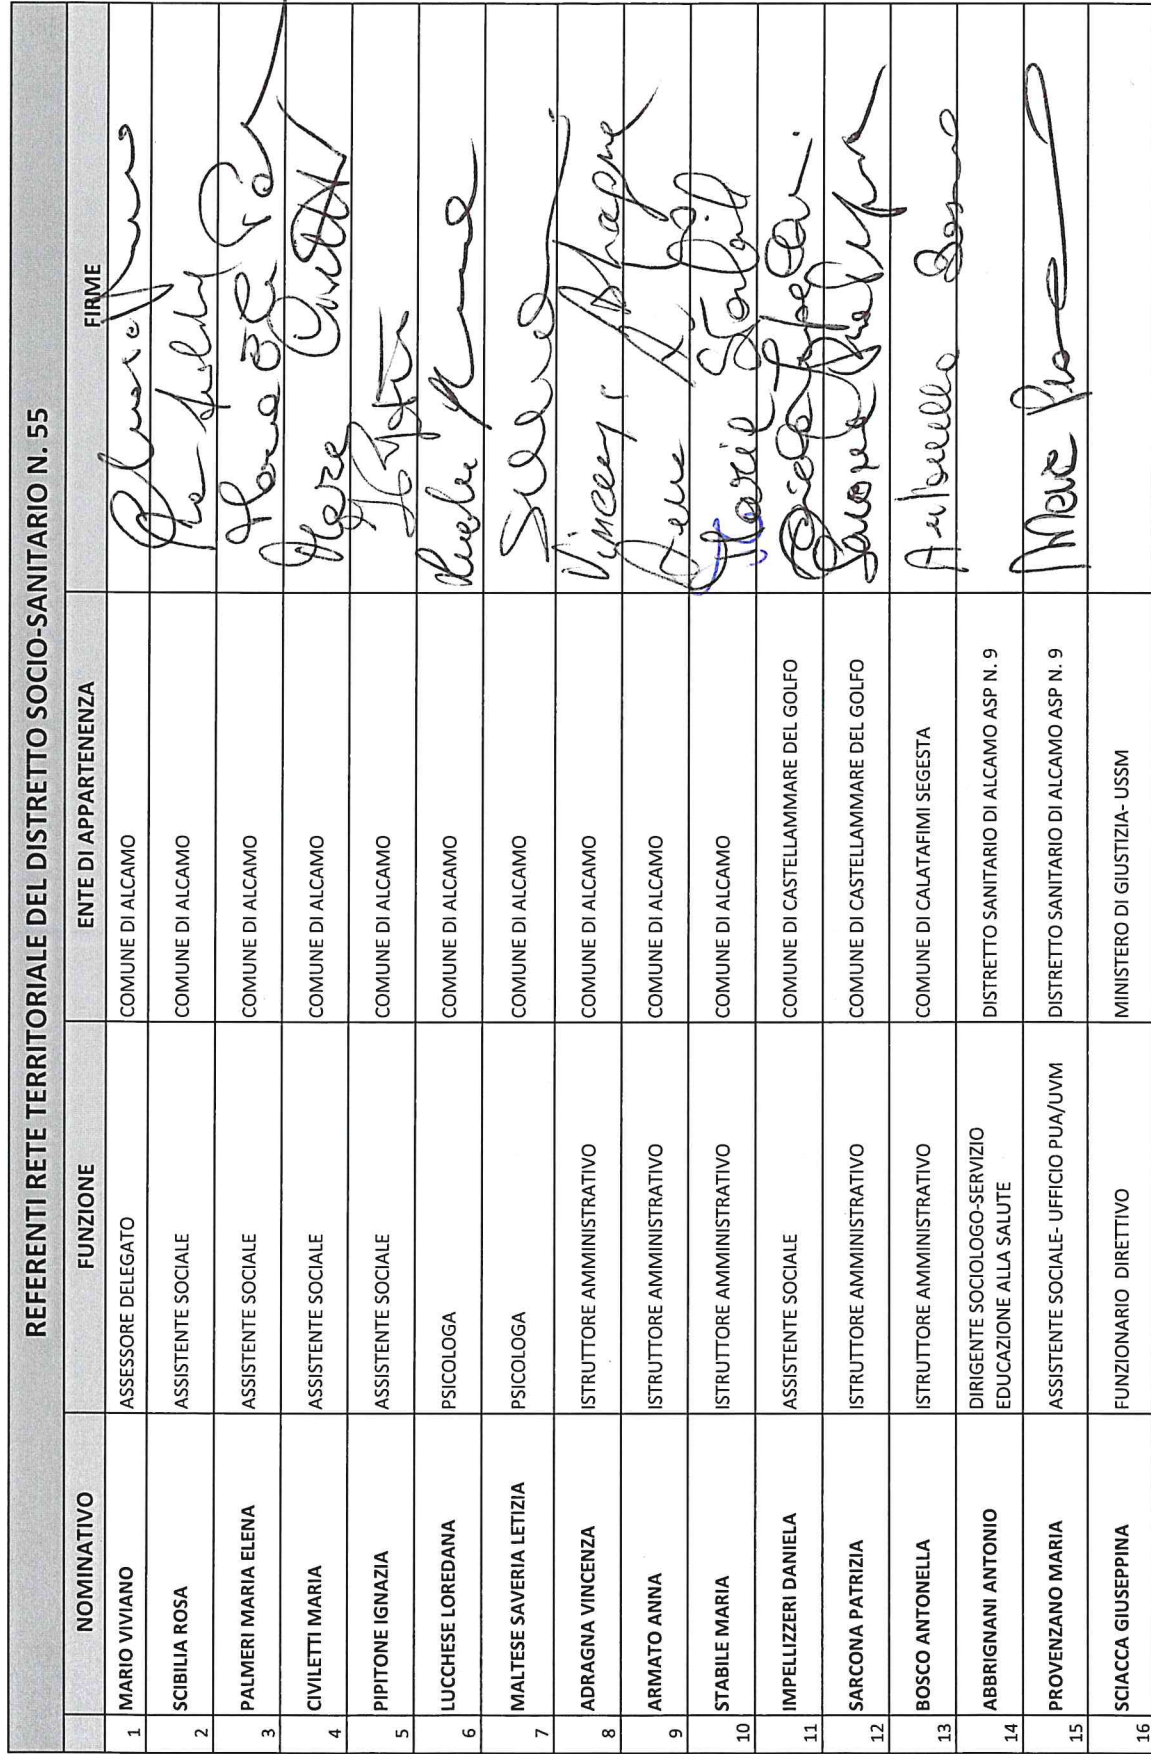 REFERENTI RETE TERRITORIALE DEL DISTRETTO SOCIO-SANITARIO N. 55
NOMINATIVO FUNZIONE ENTE DI APPARTENENZA FIRME
1 MARIO VIVIANO ASSESSORE DELEGATO COMUNE DI ALCAMO
2 SCIBILIA ROSA ASSISTENTE SOCIALE COMUNE DI ALCAMO
3 PALMERI MARIA ELENA ASSISTENTE SOCIALE COMUNE DI ALCAMO
4 CIVILETTI MARIA ASSISTENTE SOCIALE COMUNE DI ALCAMO
5 PIPITONE IGNAZIA ASSISTENTE SOCIALE COMUNE DI ALCAMO
6 LUCCHESE LOREDANA PSICOLOGA COMUNE DI ALCAMO
7 MALTESE SAVERIA LETIZIA PSICOLOGA COMUNE DI ALCAMO
8 ADRAGNA VINCENZA ISTRUTTORE AMMINISTRATIVO COMUNE DI ALCAMO
9 ARMATO ANNA ISTRUTTORE AMMINISTRATIVO COMUNE DI ALCAMO
10 STABILE MARIA ISTRUTTORE AMMINISTRATIVO COMUNE DI ALCAMO
11 IMPELLIZZERI DANIELA ASSISTENTE SOCIALE COMUNE DI CASTELLAMMARE DEL GOLFO
12 SARCONA PATRIZIA ISTRUTTORE AMMINISTRATIVO COMUNE DI CASTELLAMMARE DEL GOLFO
13 BOSCO ANTONELLA ISTRUTTORE AMMINISTRATIVO COMUNE DI CALATAFIMI SEGESTA Antonella Bosco
14 ABBRIGNANI ANTONIO DIRIGENTE SOCIOLOGO-SERVIZIO DISTRETTO SANITARIO DI ALCAMO ASP N. 9
EDUCAZIONE ALLA SALUTE
15 PROVENZANO MARIA ASSISTENTE SOCIALE- UFFICIO PUA/UVM DISTRETTO SANITARIO DI ALCAMO ASP N. 9
16 SCIACCA GIUSEPPINA FUNZIONARIO DIRETTIVO MINISTERO DI GIUSTIZIA- USSM